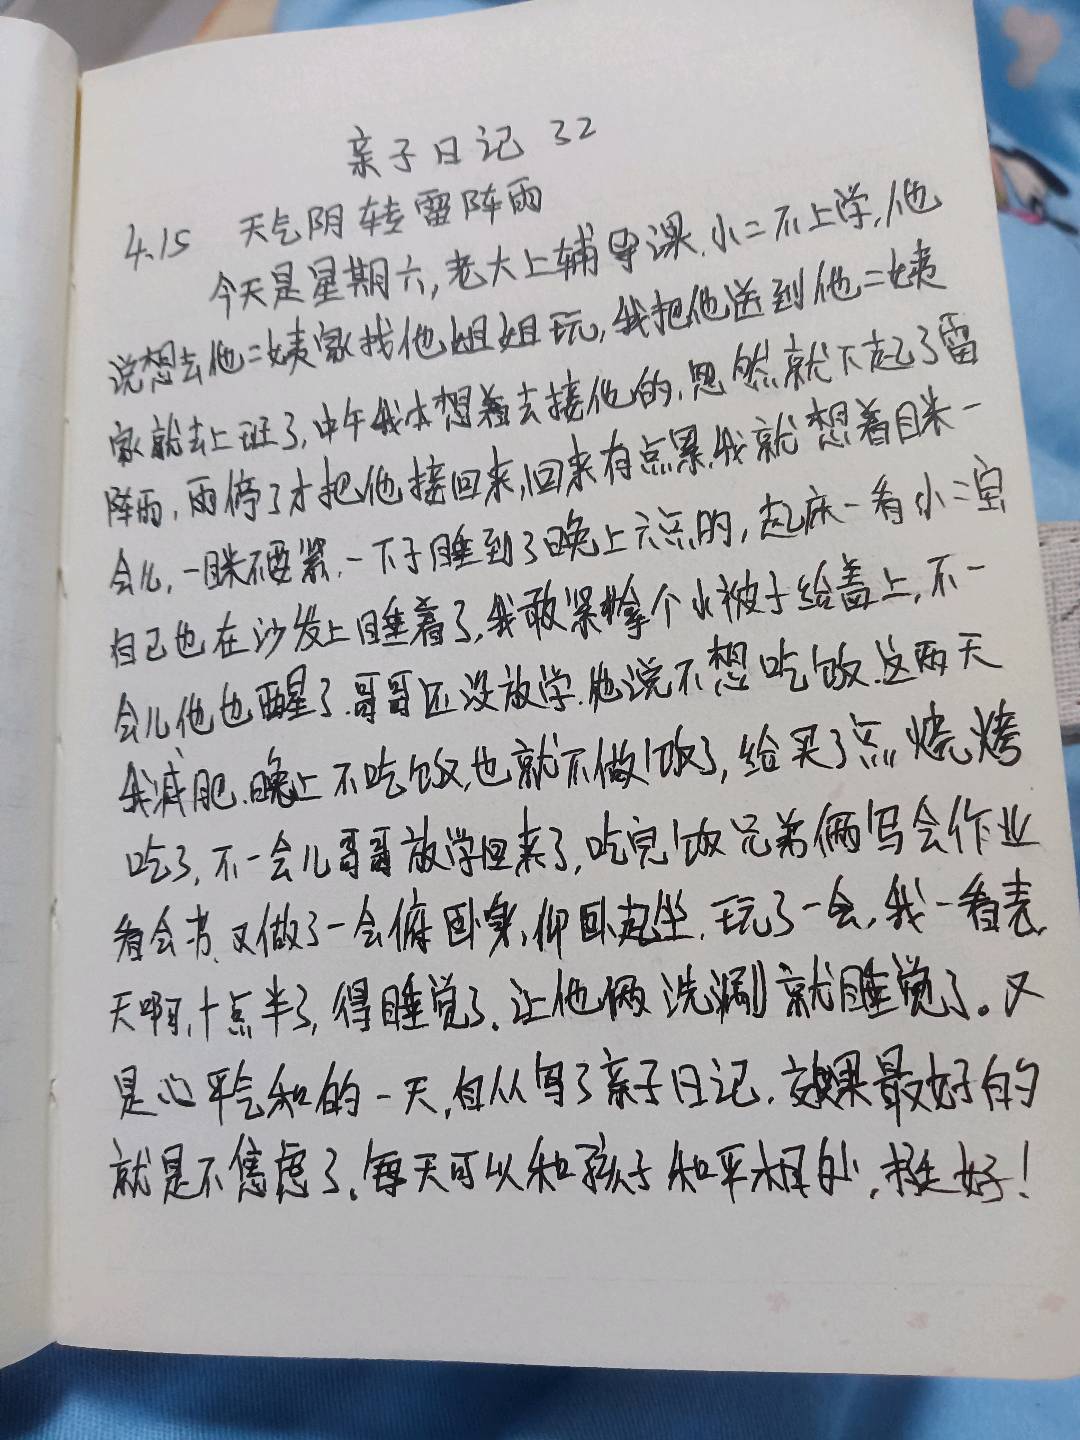 亲子日记 32
4.15 天气阴转雷阵雨
今天是星期六,老大上辅导课.小二不上学,他
说想去他二姨家找他姐姐玩,我把他送到他二姨
家就去上班了,中午我本想着去接他的,忽然就下起了雷
阵雨,雨停了才把他接回来,回来有点累,我就想着眯一
会儿,一眯不要紧,一下子睡到了晚上六点的,起床一看小二宝
自己也在沙发上睡着了,我敢紧拿个小被子给盖上,不一
会儿他也醒了.哥哥还没放学.他说不想吃饭.这两天
我减肥.晚上不吃饭,也就不做饭了,给买了点烧烤
吃了,不一会儿哥哥放学回来了,吃完饭兄弟俩写会作业
看会书,又做了一会俯卧身,仰卧起坐.玩了一会,我一看表,
天啊,十点半了,得睡觉了.让他俩洗漱就睡觉了。又
是心平气和的一天,自从写了亲子日记.效果最好的
就是不焦虑了.每天可以和孩子和平相处,挺好!